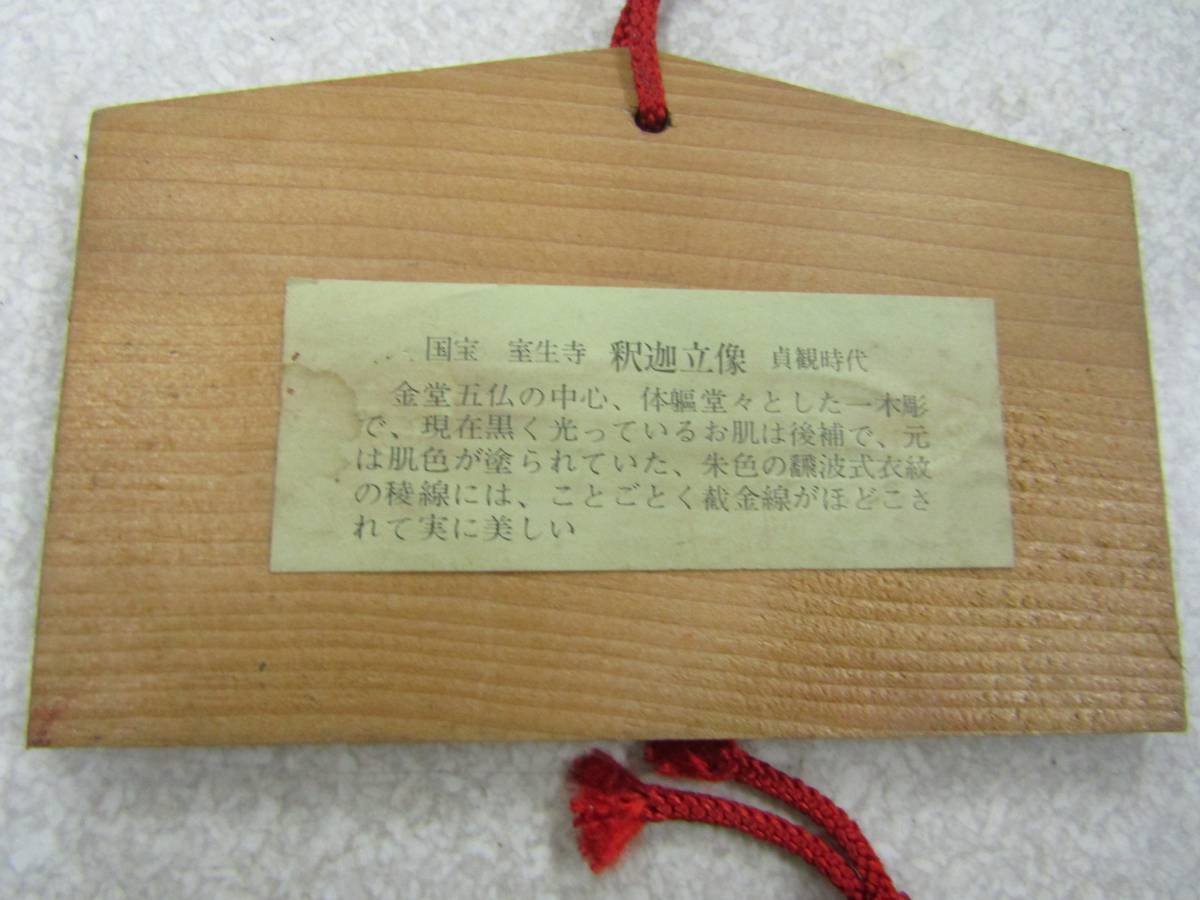 国宝 室生寺 釈迦立像 貞観時代
金堂五仏の中心、体軀堂々とした一木彫
で、現在黒く光っているお肌は後補で、元
は肌色が塗られていた、朱色の飜波式衣紋
の稜線には、ことごとく截金線がほどこさ
れて実に美しい